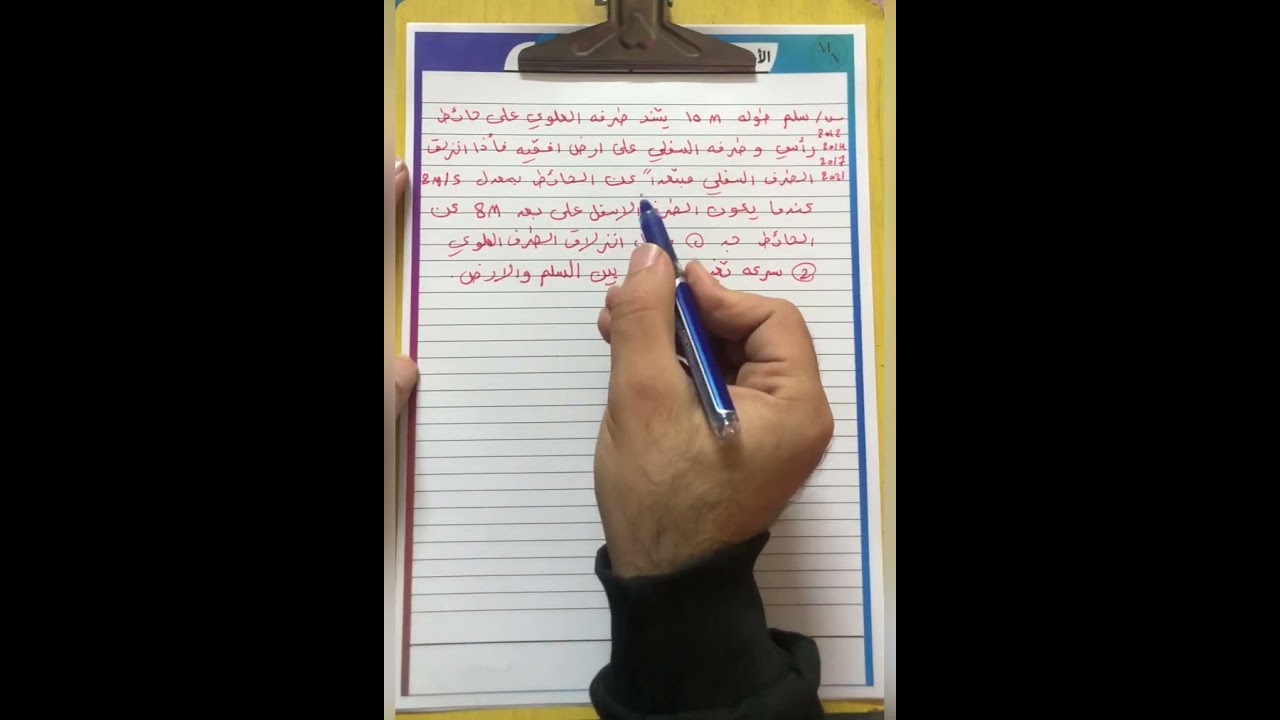 الأ
M N
س/ سلم طوله 10 M يستند طرفه العلوي على حائط
2012
رأسي وطرفه السفلي على ارض افقيه فأذا انزلق
2014
2017
الطرف السفلي مبتعداً عن الحائط بمعدل 2M/S
2021
عندما يكون الطرف الاسفل على بعد 8M عن
الحائط جد ① انزلاق الطرف العلوي
② سرعه بين السلم والارض .